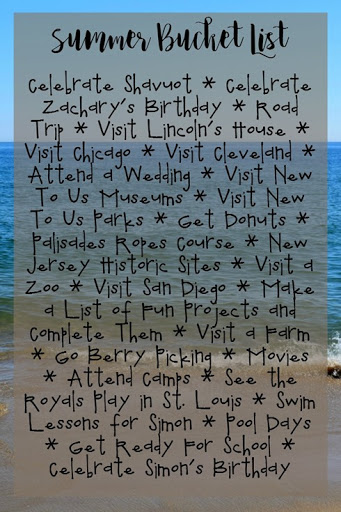 Summer Bucket List
Celebrate Shavuot * Celebrate
Zachary's Birthday * Road
Trip * Visit Lincoln's House *
Visit Chicago * Visit Cleveland *
Attend a Wedding * Visit New
To Us Museums * Visit New
To Us Parks * Get Donuts *
Palisades Ropes Course * New
Jersey Historic Sites * Visit a
Zoo * Visit San Diego * Make
a List of Fun Projects and
Complete Them * Visit a Farm
* Go Berry Picking * Movies
* Attend Camps * See the
Royals Play in St. Louis * Swim
Lessons for Simon * Pool Days
* Get Ready For School *
Celebrate Simon's Birthday